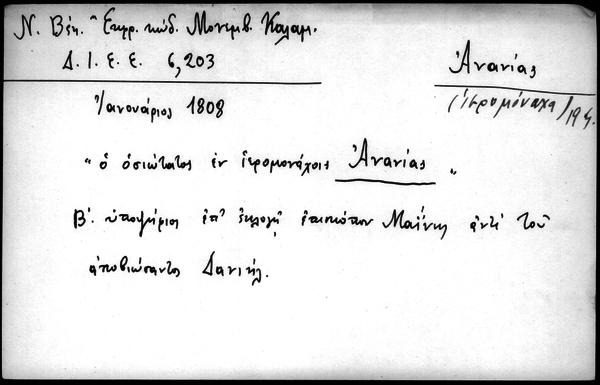 Ν. Βέη. "Εκφρ. κώδ. Μονεμβ. Καλαμ.
Δ. Ι. Ε. Ε. 6,203
Ἀνανίας
(ἱερομόναχο)
Ἰανουάριος 1808
"ὁ ὁσιώτατος ἐν ἱερομονάχοις Ἀνανίας"
Β'. ὑποψήφιος ἐπ' ἐκλογῇ ἐπισκόπου Μαΐνης ἀντὶ τοῦ
ἀποβιώσαντος Δανιήλ.